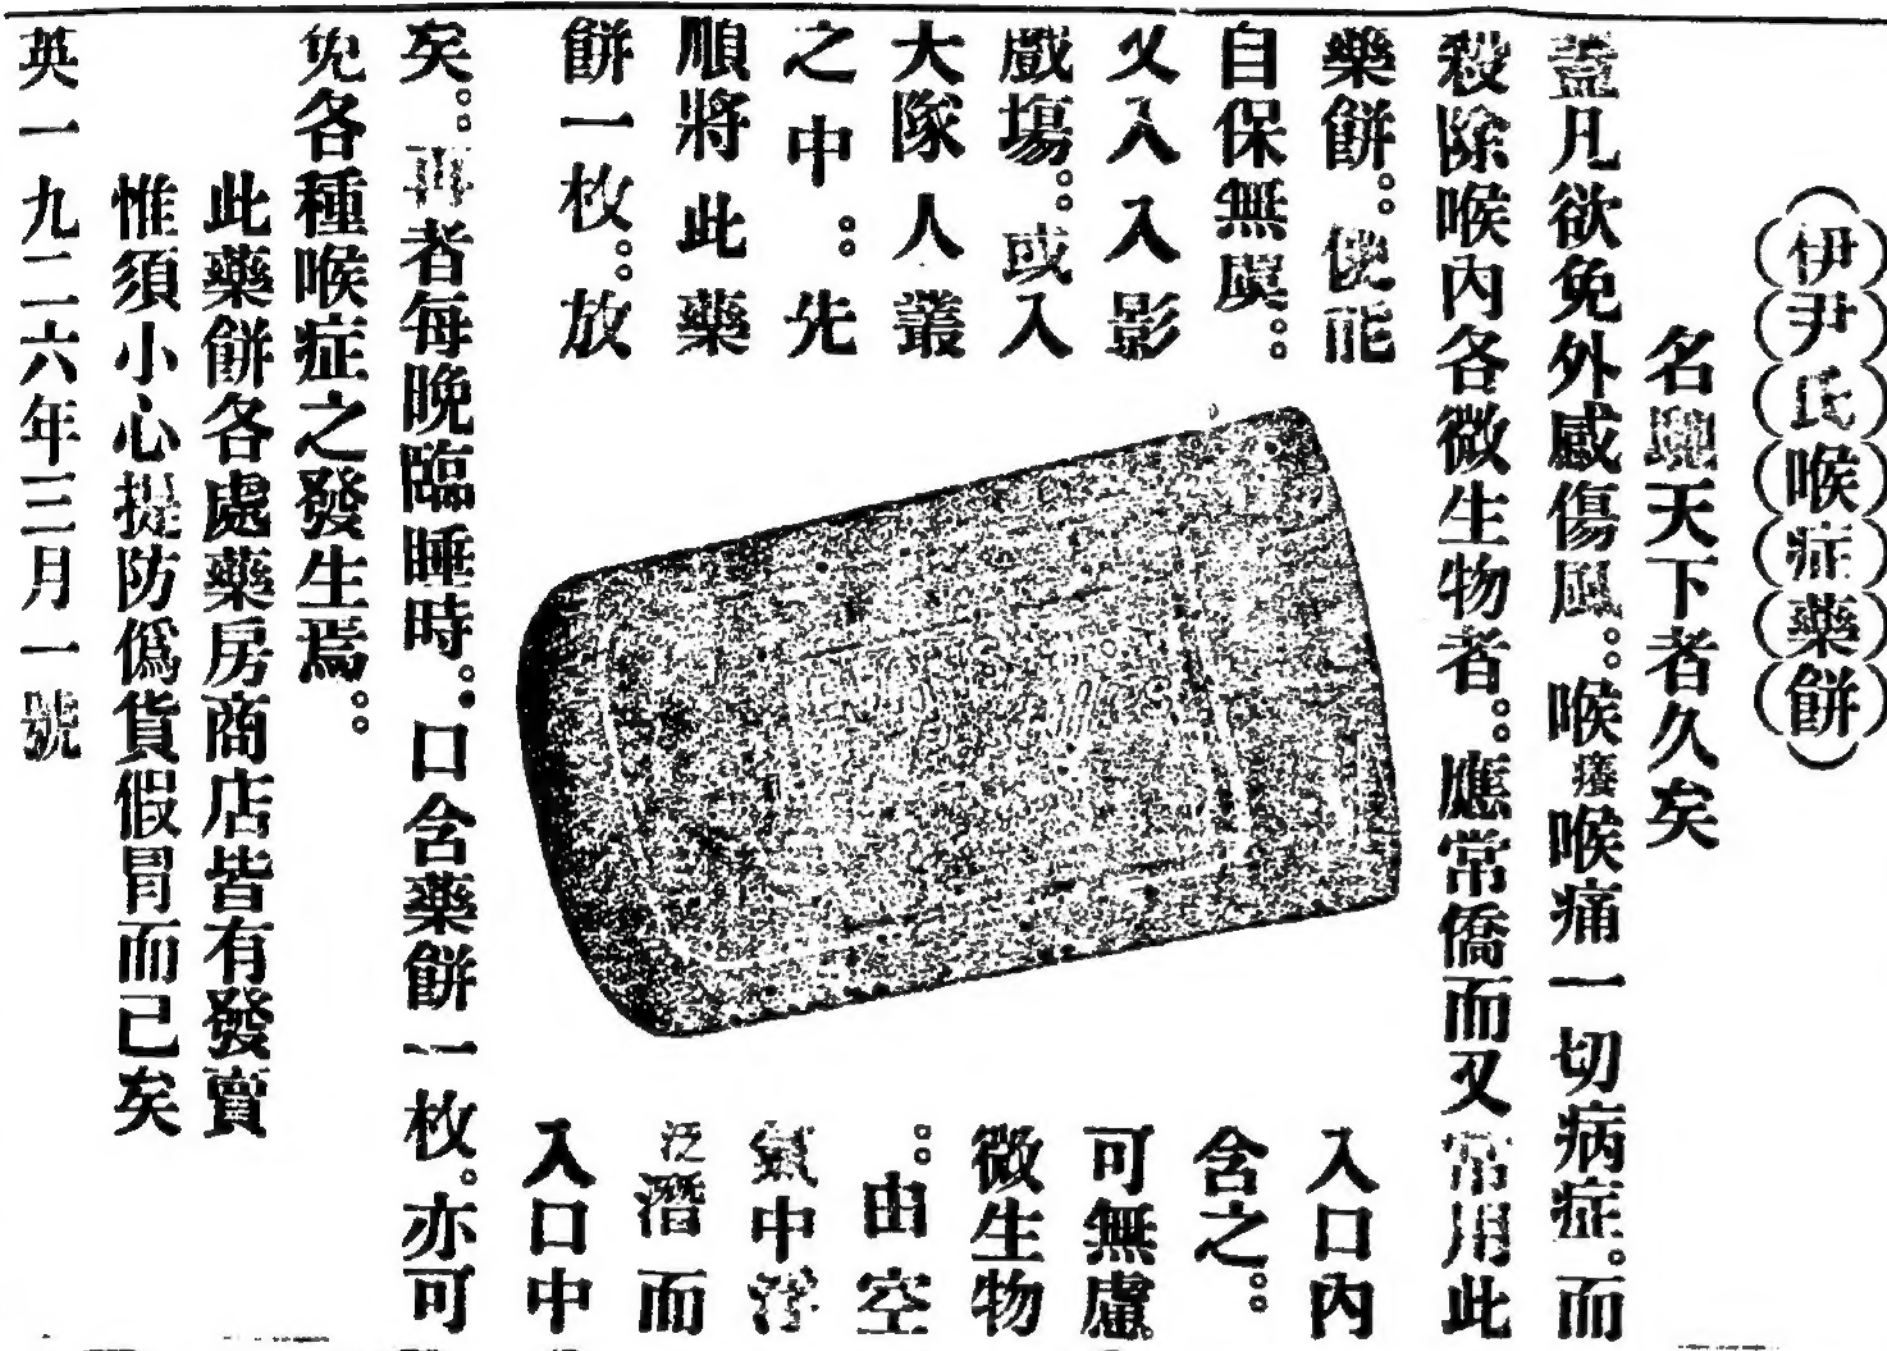 伊尹氏喉症藥餅
名馳天下者久矣
蓋凡欲免外感傷風。喉癢喉痛一切病症。而
殺除喉內各微生物者。應常備而又常用此
藥餅。便能
自保無虞。
又入入影
戲塲。或入
大隊人叢
之中。先
順將此藥
餅一枚。放
入口內
含之。
可無慮
微生物
。由空
氣中浮
泛潛而
入口中
矣。再者每晚臨睡時。口含藥餅一枚。亦可
免各種喉症之發生焉。
此藥餅各處藥房商店皆有發賣
惟須小心提防僞貨假冒而已矣
英一九二六年三月一號